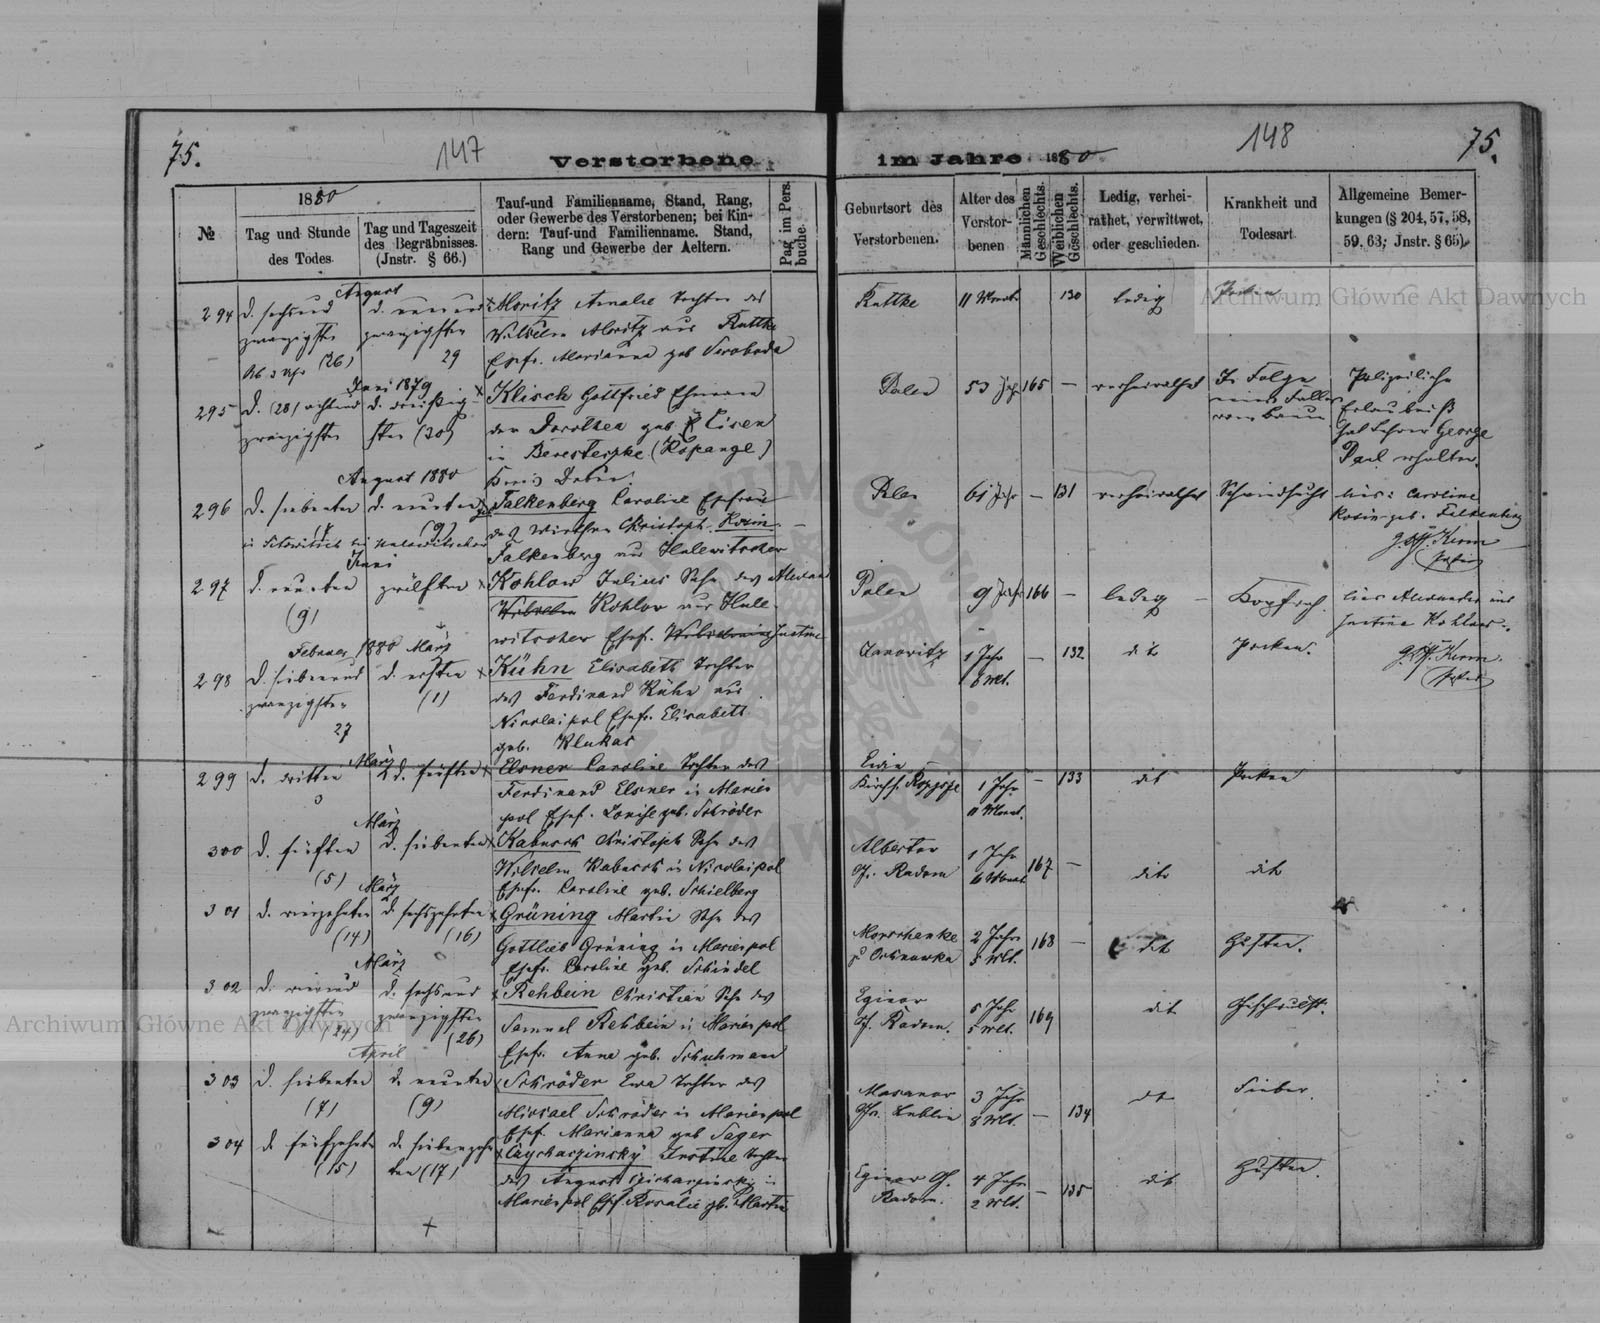 75.
147
Verstorbene
1880
№
Tag und Stunde
des Todes.
Tag und Tageszeit
des Begräbnisses.
(Jnstr. § 66.)
Tauf- und Familienname, Stand, Rang,
oder Gewerbe des Verstorbenen; bei Kin-
dern: Tauf-und Familienname. Stand,
Rang und Gewerbe der Aeltern.
Pag. im Pers.
buche.
August
294
d. sechsund
zwanzigsten
(26)
d. neunund
zwanzigsten
29
Moritz Amalie Tochter des
Wilhelm Moritz aus Ruttke
Ehefr. Marianna geb Swoboda
Juni 1879
295
d. (28) achtund
zwanzigsten
d. dreißig-
sten (30)
Klisch Gottfried Ehemann
der Dorothea geb. Eisen
in Beresteczke (Kopange)
Kreis Dubno.
August 1880
296
d. siebenten
d. neunten
(9)
Falkenberg Caroline Ehefrau
des Wirthen Christoph
Falkenberg aus Hulewitscher
Juni
297
d. neunten
(9)
zwölften
Kohlow Julius Sohn des Alexand
Wilhelm Kohlow aus Hule-
witscher Ehef. Justine
Februar 1880 März
298
d. siebenund
zwanzigsten
27
d. ersten
(1)
Kühn Elisabeth Tochter
des Ferdinand Kühn aus
Nicolaipol Ehefr. Elisabeth
geb. Klukas
März
299
d. dritten
3
d. fünften
Elsner Caroline Tochter des
Ferdinand Elsner in Marien
pol Ehef. Louise geb. Schröder
März
300
d. fünften
(5)
d. siebenten
Kabusch Christoph Sohn des
Wilhelm Kabusch in Nicolaipol
Ehefr. Caroline geb. Schielberg
März
301
d. vierzehnten
(14)
d. sechszehnten
(16)
Grüning Martin Sohn des
Gottlieb Grüning in Marienpol
Ehefr. Caroline geb. Schindel
März
302
d. vierund
zwanzigsten
(24)
d. sechsund
zwanzigsten
(26)
Rehbein Christian Sohn des
Samuel Rehbein in Marienpol
Ehefr. Anna geb. Schuhmann
April
303
d. siebenten
(7)
d. neunten
(9)
Schröder Ewa Tochter des
Michael Schröder in Marienpol
Ehef. Marianna geb Sager
304
d. fünfzehnten
(15)
d. siebenzehn
ten (17)
Czycharzinsky Justine Tochter
des August in
Marienpol Ehef. Rosalie gb. Martin
im Jahre 1880
148
75.
Geburtsort des
Verstorbenen.
Alter des
Verstor-
benen
Männlichen
Geschlechts.
Weiblichen
Geschlechts.
Ledig, verhei-
rathet, verwittwet,
oder geschieden.
Krankheit und
Todesart.
Allgemeine Bemer-
kungen (§ 204, 57, 58,
59, 63; Jnstr. § 65).
Ruttke 11 Monate 130 ledig Pocken
Polen 53 Jahr 165 — verheirathet In Folge
eines Falles
vom Baum
Polizeiliche
Erlaubniß
hat Lehrer George
Paul erhalten.
Polen 61 Jahr — 131 verheirathet Schwindsucht
lies: Caroline
Rosin geb. Falkenberg
Polen 9 Jahr 166 — ledig
lies Alexander und
Justina Kohlow.
Janowitz 1 Jahr
6 Mt. — 132 dit Pocken.
Kirchf. 1 Jahr
11 Monat. — 133 dit Pocken
Albertow
Gf. Radom 1 Jahr
6 Monat 167 — dito dit
2 Jahr
5 Mt. 168 — dit Husten.
Gf. Radom. 5 Jahr
5 Mt. 169 dit Geschwulst.
Gfr. Lublin 3 Jahr
8 Mt. — 134 dit Fieber.
Radom. 4 Jahr
2 Mt. — 135 dit Husten.
Archiwum Główne Akt Dawnych
Archiwum Główne Akt Dawnych